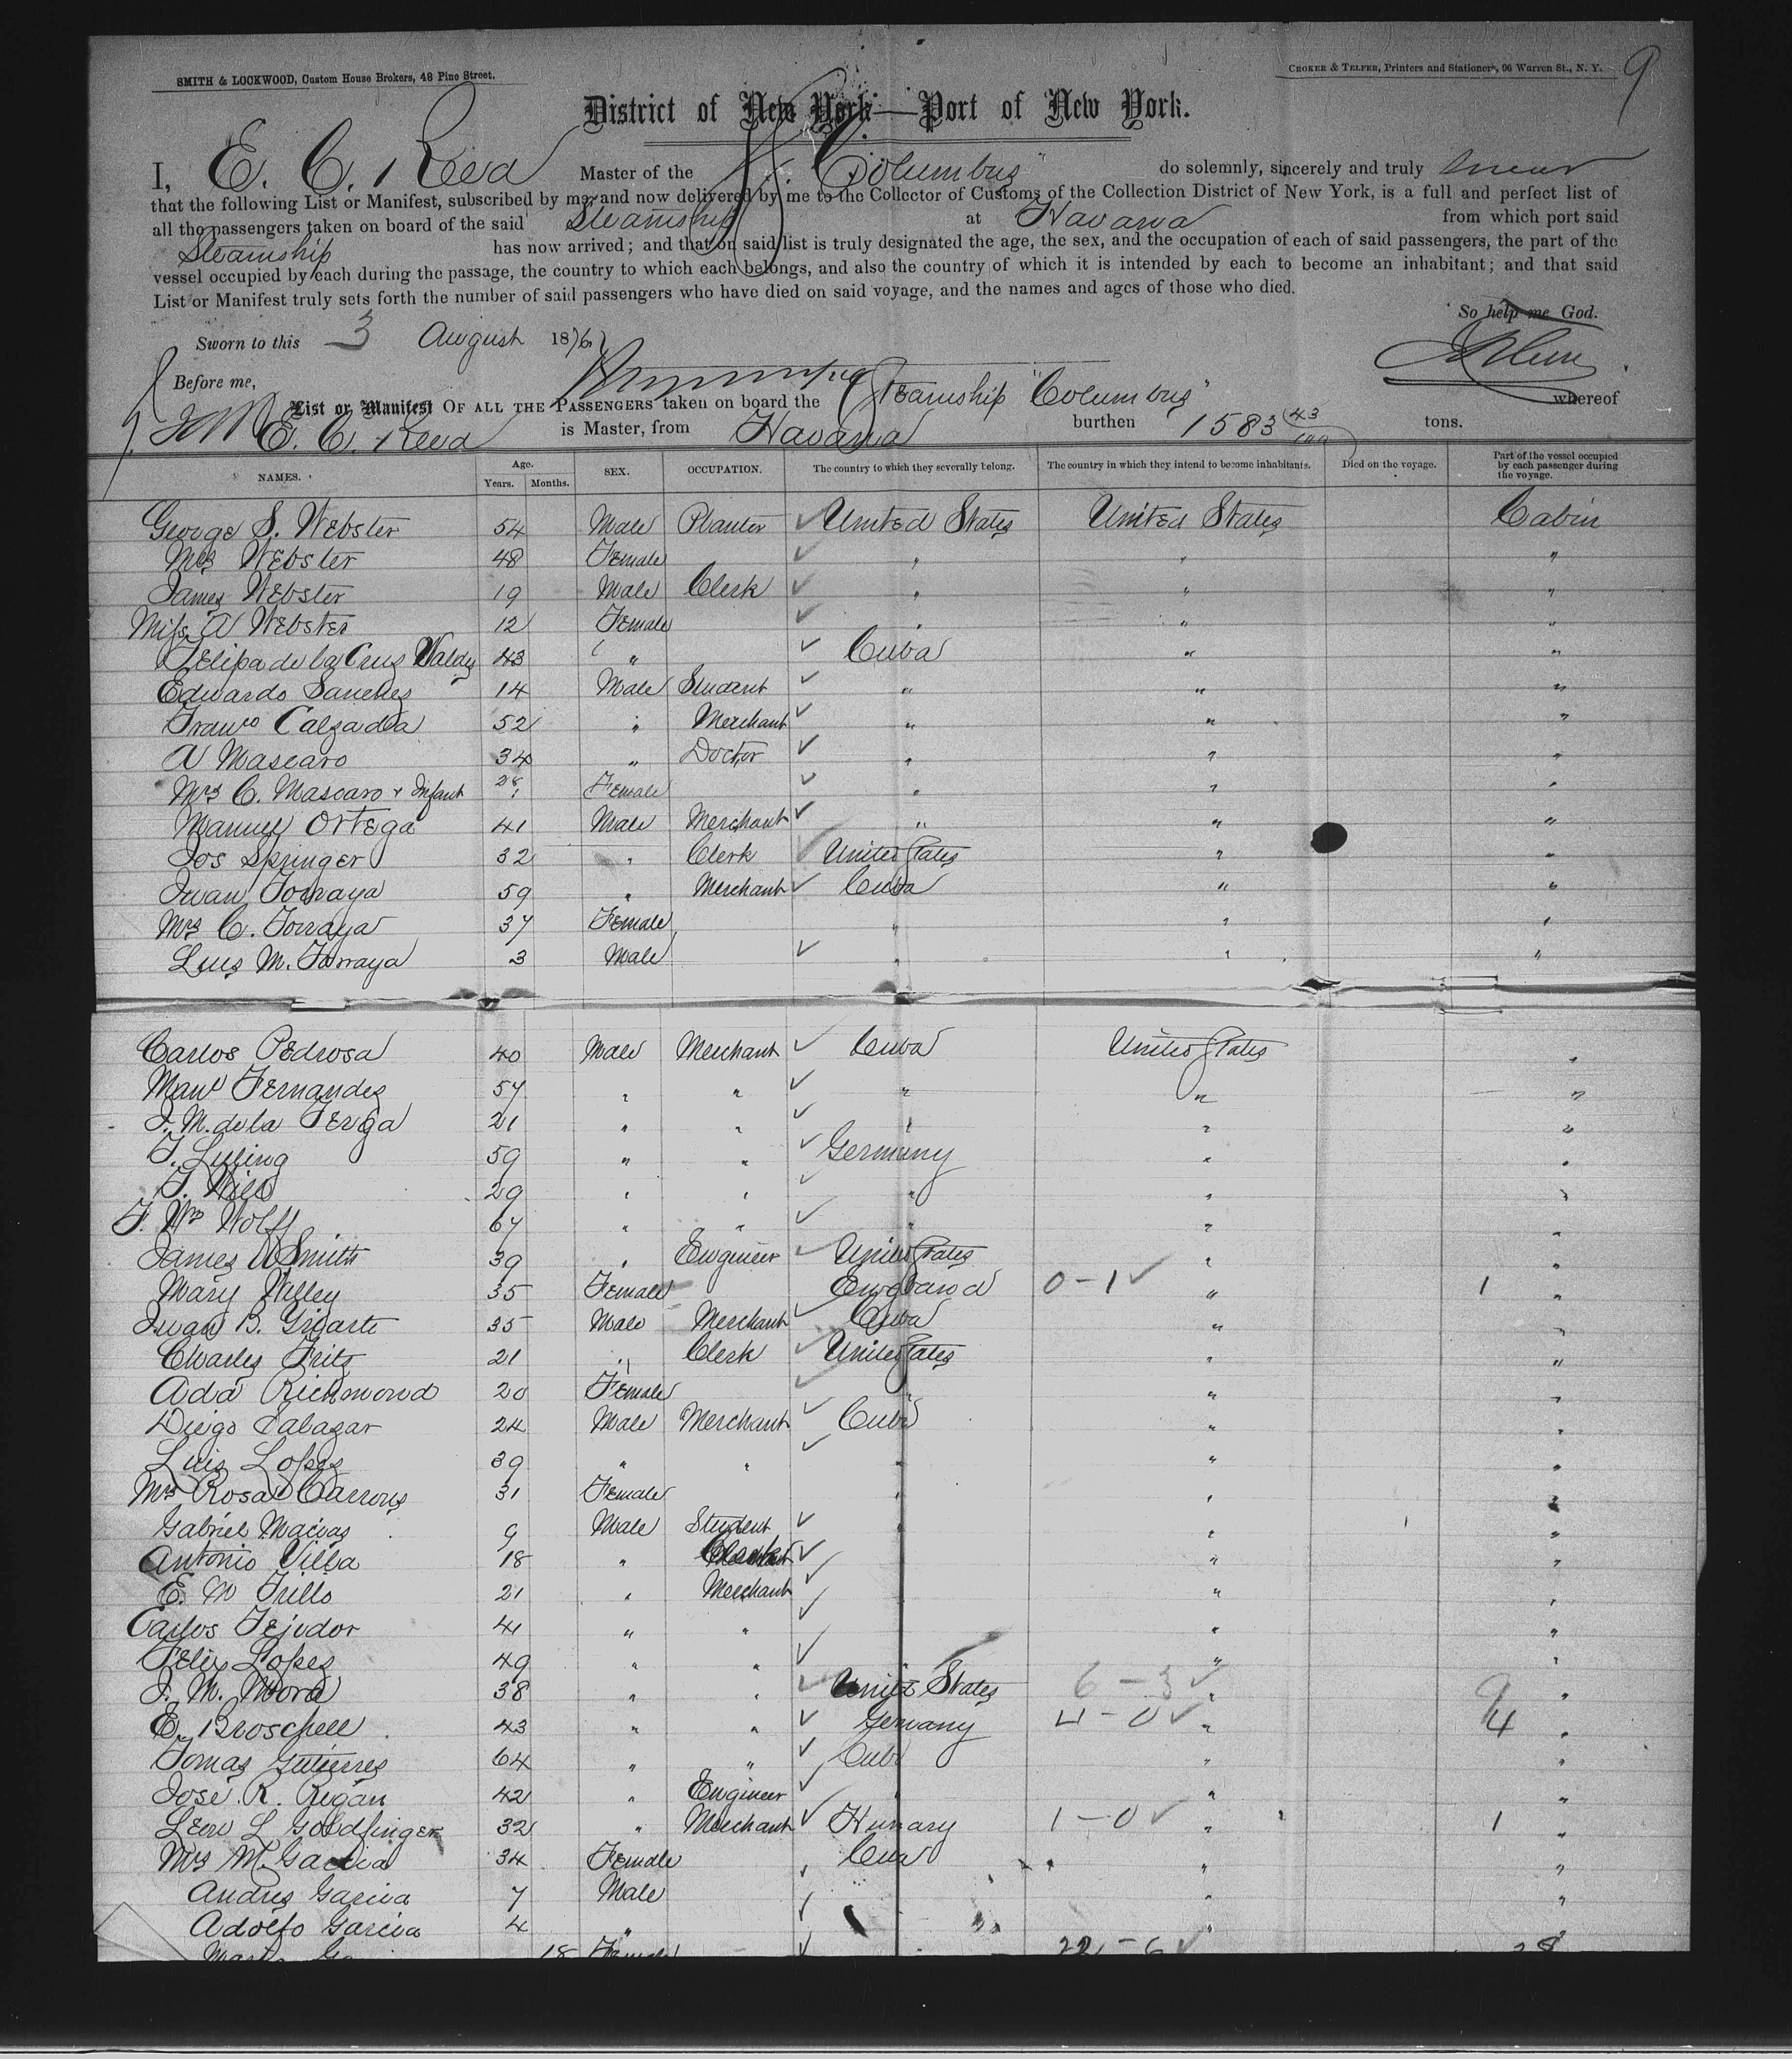 SMITH & LOCKWOOD, Custom House Brokers, 48 Pine Street.
CROKER & TELFER, Printers and Stationers, 96 Warren St., N. Y.
9
District of New York—Port of New York.
I, E. C. Reed Master of the Columbus do solemnly, sincerely and truly swear
that the following List or Manifest, subscribed by me, and now delivered by me to the Collector of Customs of the Collection District of New York, is a full and perfect list of
all the passengers taken on board of the said Steamship at Havana from which port said
Steamship has now arrived; and that on said list is truly designated the age, the sex, and the occupation of each of said passengers, the part of the
vessel occupied by each during the passage, the country to which each belongs, and also the country of which it is intended by each to become an inhabitant; and that said
List or Manifest truly sets forth the number of said passengers who have died on said voyage, and the names and ages of those who died.
So help me God.
Sworn to this 3 August 1876
Before me,
List or Manifest OF ALL THE PASSENGERS taken on board the Steamship "Columbus" whereof
E. C. Reed is Master, from Havana burthen 1583 43/100 tons.
NAMES. Age. Years. Months. SEX. OCCUPATION. The country to which they severally belong. The country in which they intend to become inhabitants. Died on the voyage. Part of the vessel occupied by each passenger during the voyage.
George S. Webster 54 Male Planter ✓ United States United States Cabin
Mrs Webster 48 Female ✓ " " "
James Webster 19 Male Clerk ✓ " " "
Miss A Webster 12 Female ✓ " " "
Felipa de la Cruz Valdez 43 " ✓ Cuba " "
Eduardo Sanchez 14 Male Student ✓ " " "
Franco Calzadia 52 " Merchant ✓ " " "
A Mascaro 34 " Doctor ✓ " " "
Mrs C. Mascaro & Infant 28 Female ✓ " " "
Manuel Ortega 41 Male Merchant ✓ " " "
Jos Springer 32 " Clerk ✓ United States " "
Juan Torraya 59 " Merchant ✓ Cuba " "
Mrs C. Torraya 37 Female " " "
Luis M. Torraya 3 Male ✓ " " "
Carlos Pedrosa 40 Male Merchant ✓ Cuba United States "
Manl Fernandez 57 " " ✓ " " "
J. M. de la Teriga 21 " " ✓ " " "
F. Luling 59 " " ✓ Germany " "
29 " " ✓ " " "
F. Wm Wolff 67 " " ✓ " " "
James A Smith 39 " Engineer ✓ United States " "
Mary Willey 35 Female England 0-1 ✓ " 1 "
Juan B. Ysiarte 35 Male Merchant ✓ Cuba " "
Charles Fritz 21 " Clerk ✓ United States " "
Ada Richmond 20 Female ✓ " " "
Diego Salazar 24 Male Merchant ✓ Cuba " "
Luis Lopez 39 " " ✓ " " "
Mrs Rosa Carrous 31 Female " " "
Gabriel Macias 9 Male Student ✓ " " "
Antonio Villa 18 " ✓ " "
E. M Trillo 21 " Merchant ✓ " "
Carlos Tejedor 41 " " ✓ " "
Felix Lopez 49 " " ✓ " " "
J. M. Mora 38 " " ✓ United States 6-3 ✓ " 9 "
E. Broschell 43 " " ✓ Germany 4-0 ✓ " 4 "
Tomas Gutierres 64 " " ✓ Cuba " "
José R. Rigan 42 " Engineer ✓ " " "
Leon L Goldfinger 32 " Merchant ✓ Hunary 1-0 ✓ " 1 "
Mrs M. Garcia 34 Female Cuba " "
Andres Garcia 7 Male ✓ " "
Adolfo Garcia 4 " " "
18 Female ✓ 22-6 ✓ 28